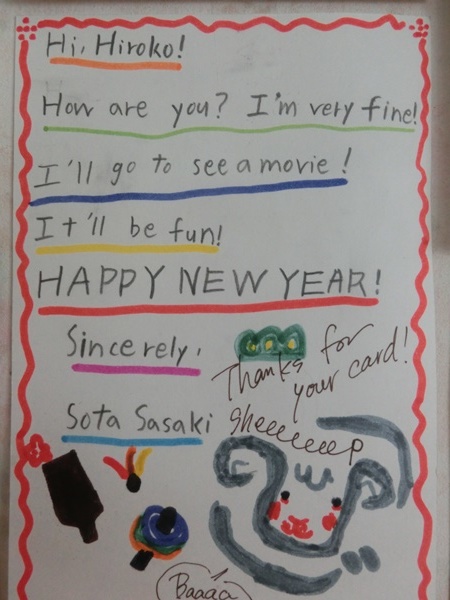 Hi, Hiroko!
How are you? I'm very fine!
I'll go to see a movie!
It'll be fun!
HAPPY NEW YEAR!
Sincerely,
Thanks for
your card!
Sota Sasaki
Sheeeeeep
Baaaa